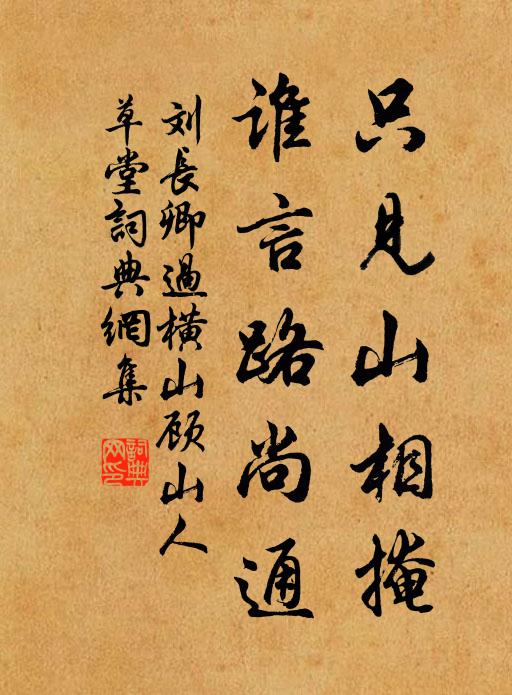 只見山相掩
誰言路尚通
刘長卿過橫山顾山人
草堂詞典網集
詞典网印